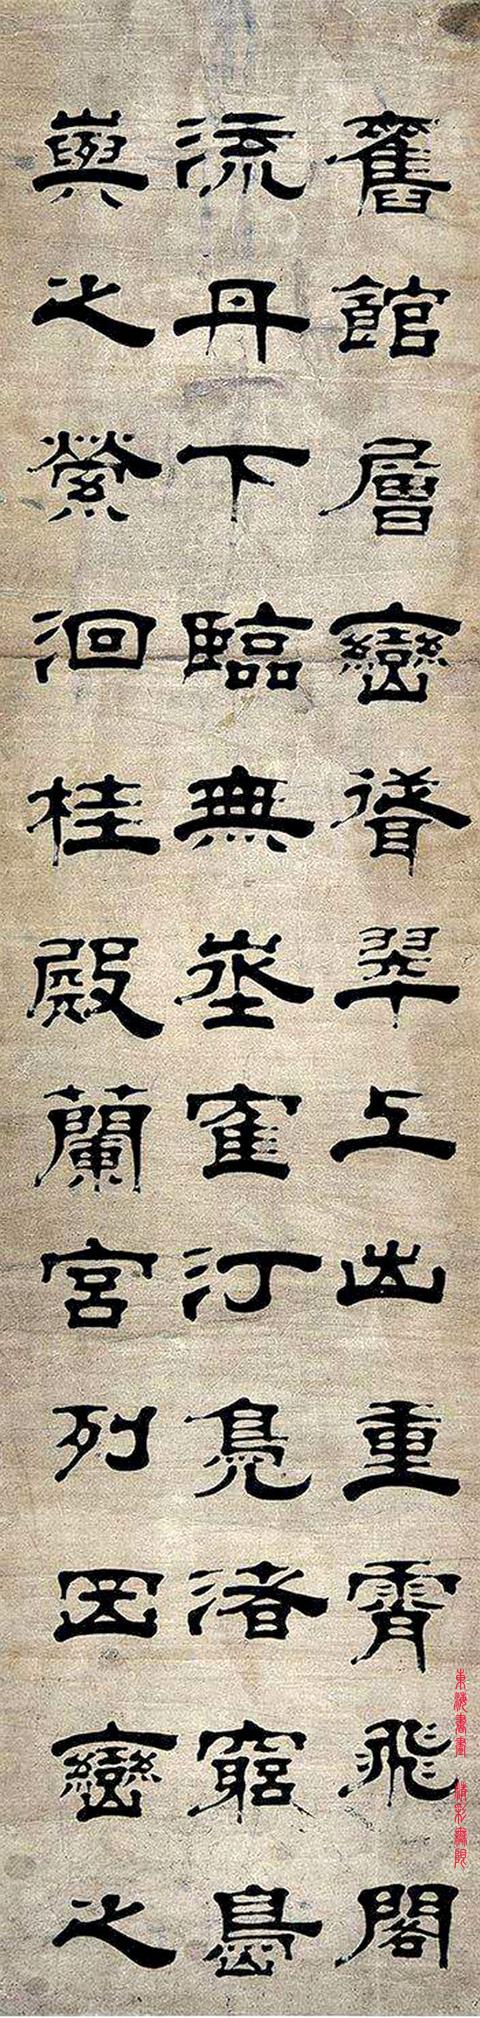 舊館層巒聳翠上出重霄飛閣
流丹下臨無埊隺汀鳧渚窮島
嶼之縈洄桂殿蘭宮列岡巒之
東海書畫 精彩無限